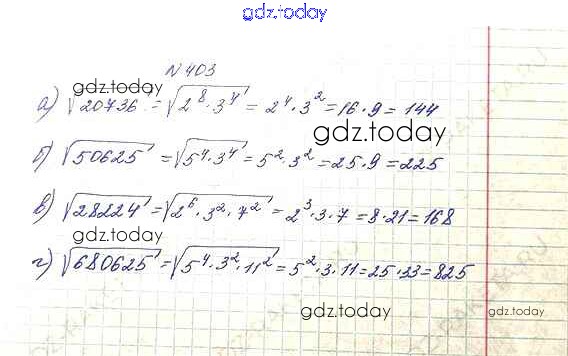 gdz.today
№403
gdz.today
а) √20736 = √2⁸·3⁴ = 2⁴·3² = 16·9 = 144
gdz.today
б) √50625 = √5⁴·3⁴ = 5²·3² = 25·9 = 225
в) √28224 = √2⁶·3²·7² = 2³·3·7 = 8·21 = 168
gdz.today
г) √680625 = √5⁴·3²·11² = 5²·3·11 = 25·33 = 825
gdz.today
gdz.today